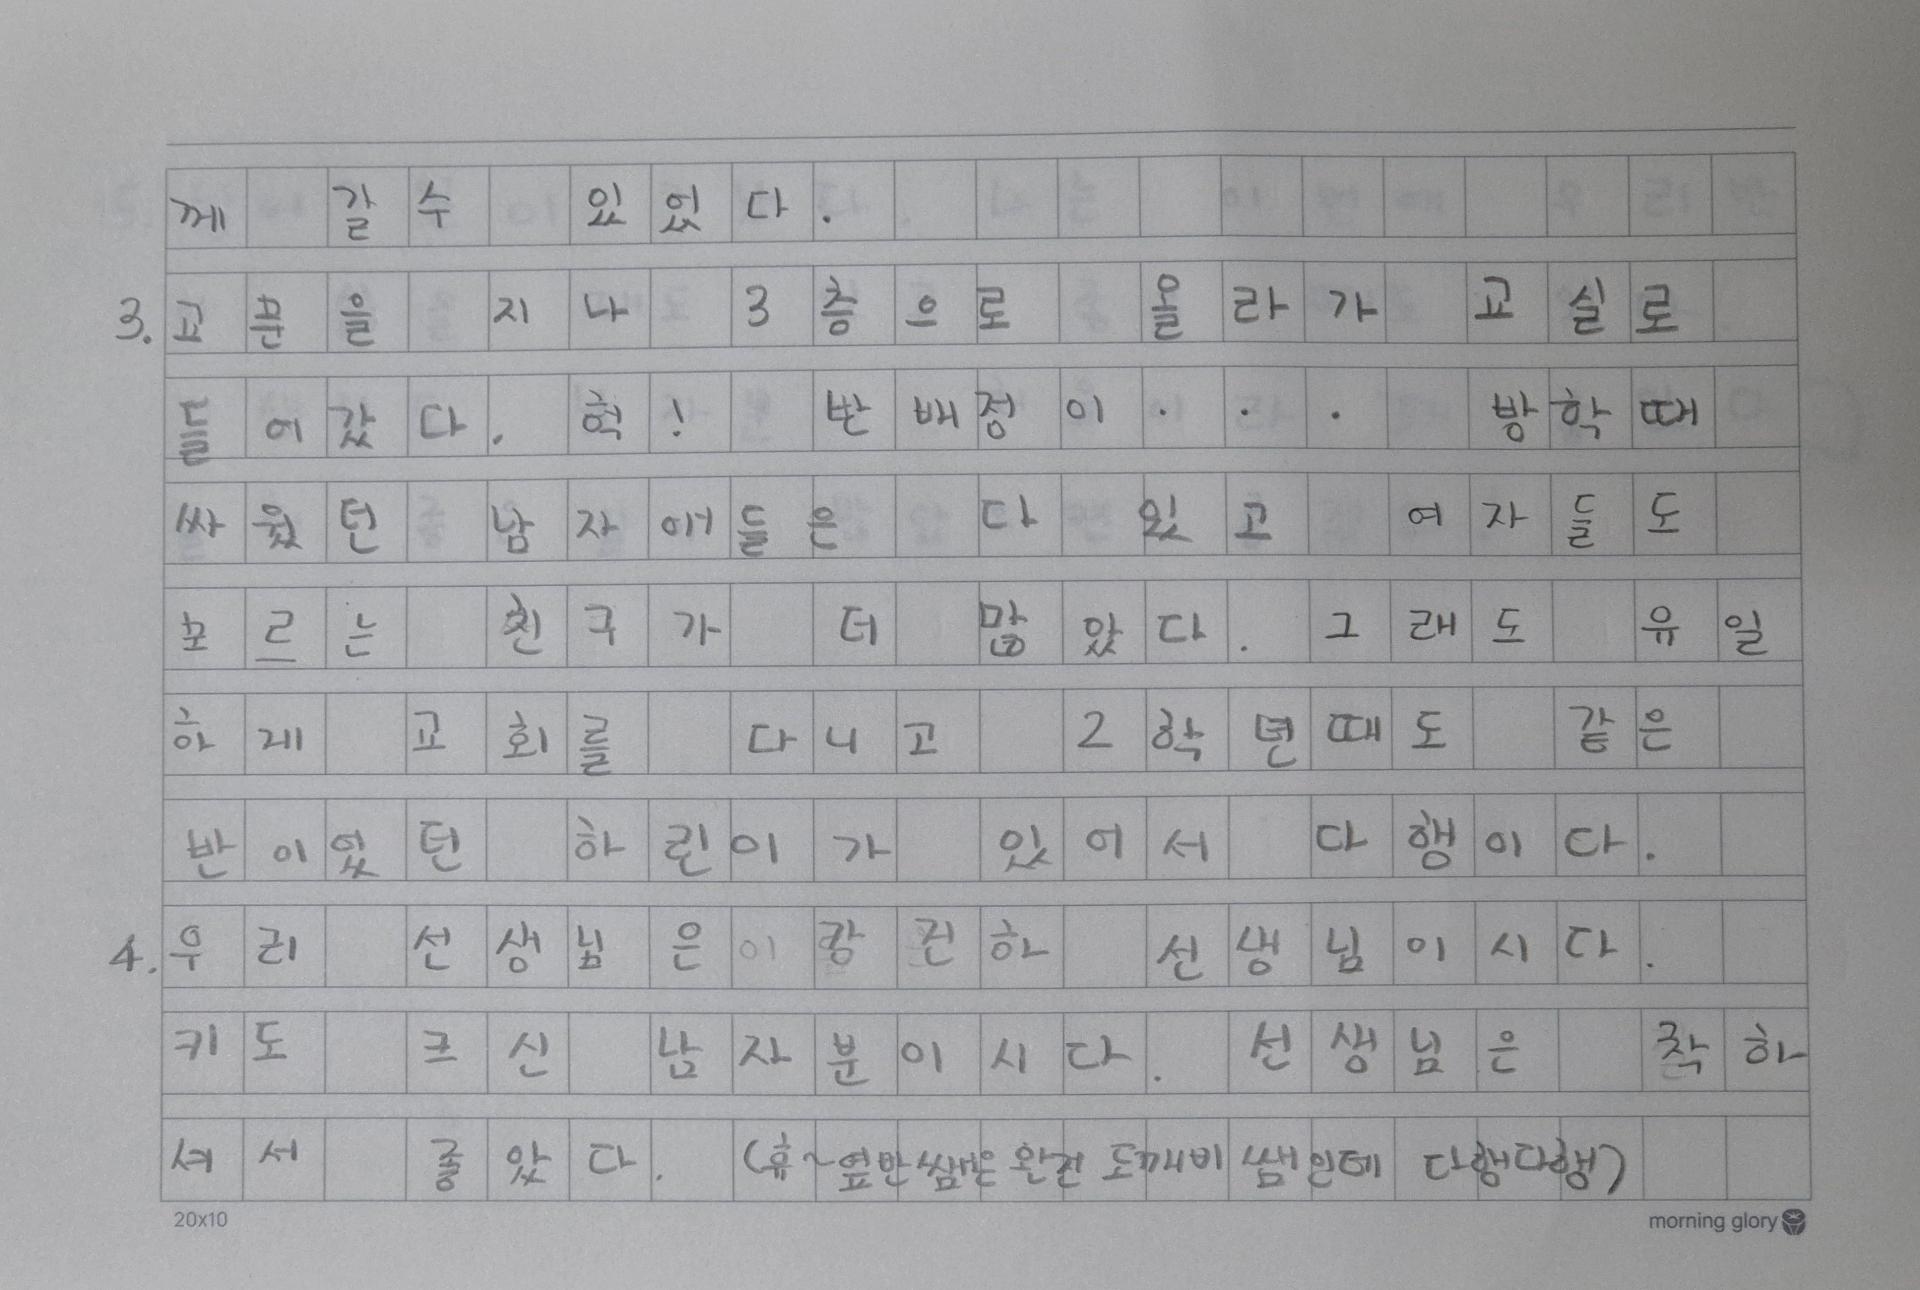 께 갈수 있었다.
3. 교문을 지나 3층으로 올라가 교실로
들어갔다. 헉! 반배정이··· 방학때
싸웠던 남자애들은 다 있고 여자들도
모르는 친구가 더 많았다. 그래도 유일
하게 교회를 다니고 2학년때도 같은
반이었던 하린이가 있어서 다행이다.
4. 우리 선생님은 이강건하 선생님이시다.
키도 크신 남자분이시다. 선생님은 착하
셔서 좋았다. (휴~옆반쌤은 완전 도깨비 쌤인데 다행다행)
20x10
morning glory